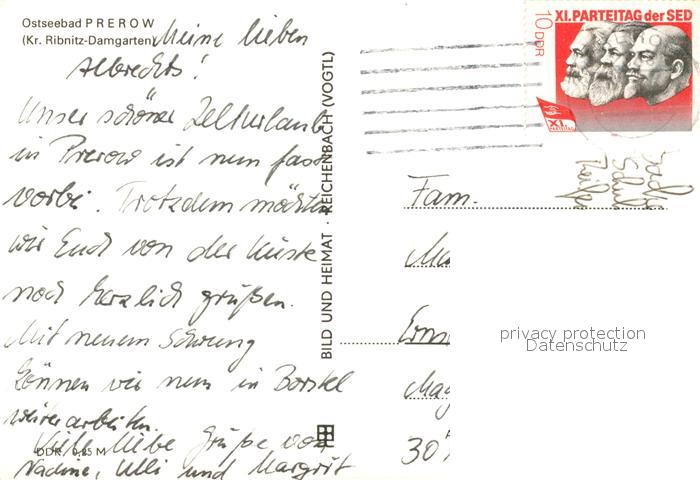 Ostseebad PREROW
(Kr. Ribnitz-Damgarten)
Meine lieben
Albrechts!
Unser schöner Zelturlaub
in Prerow ist nun fast
vorbei. Trotzdem möchten
wir Euch von der Küste
noch herzlich grüßen.
Mit neuem Schwung
können wir nun in Borstel
weiterarbeiten.
Viele liebe Grüße von
Nadine, Ulli und Margrit
DDR 0,85 M
BILD UND HEIMAT · REICHENBACH (VOGTL)
10 DDR
XI. PARTEITAG der SED
XI.
PARTEITAG
Fam.
30
privacy protection
Datenschutz